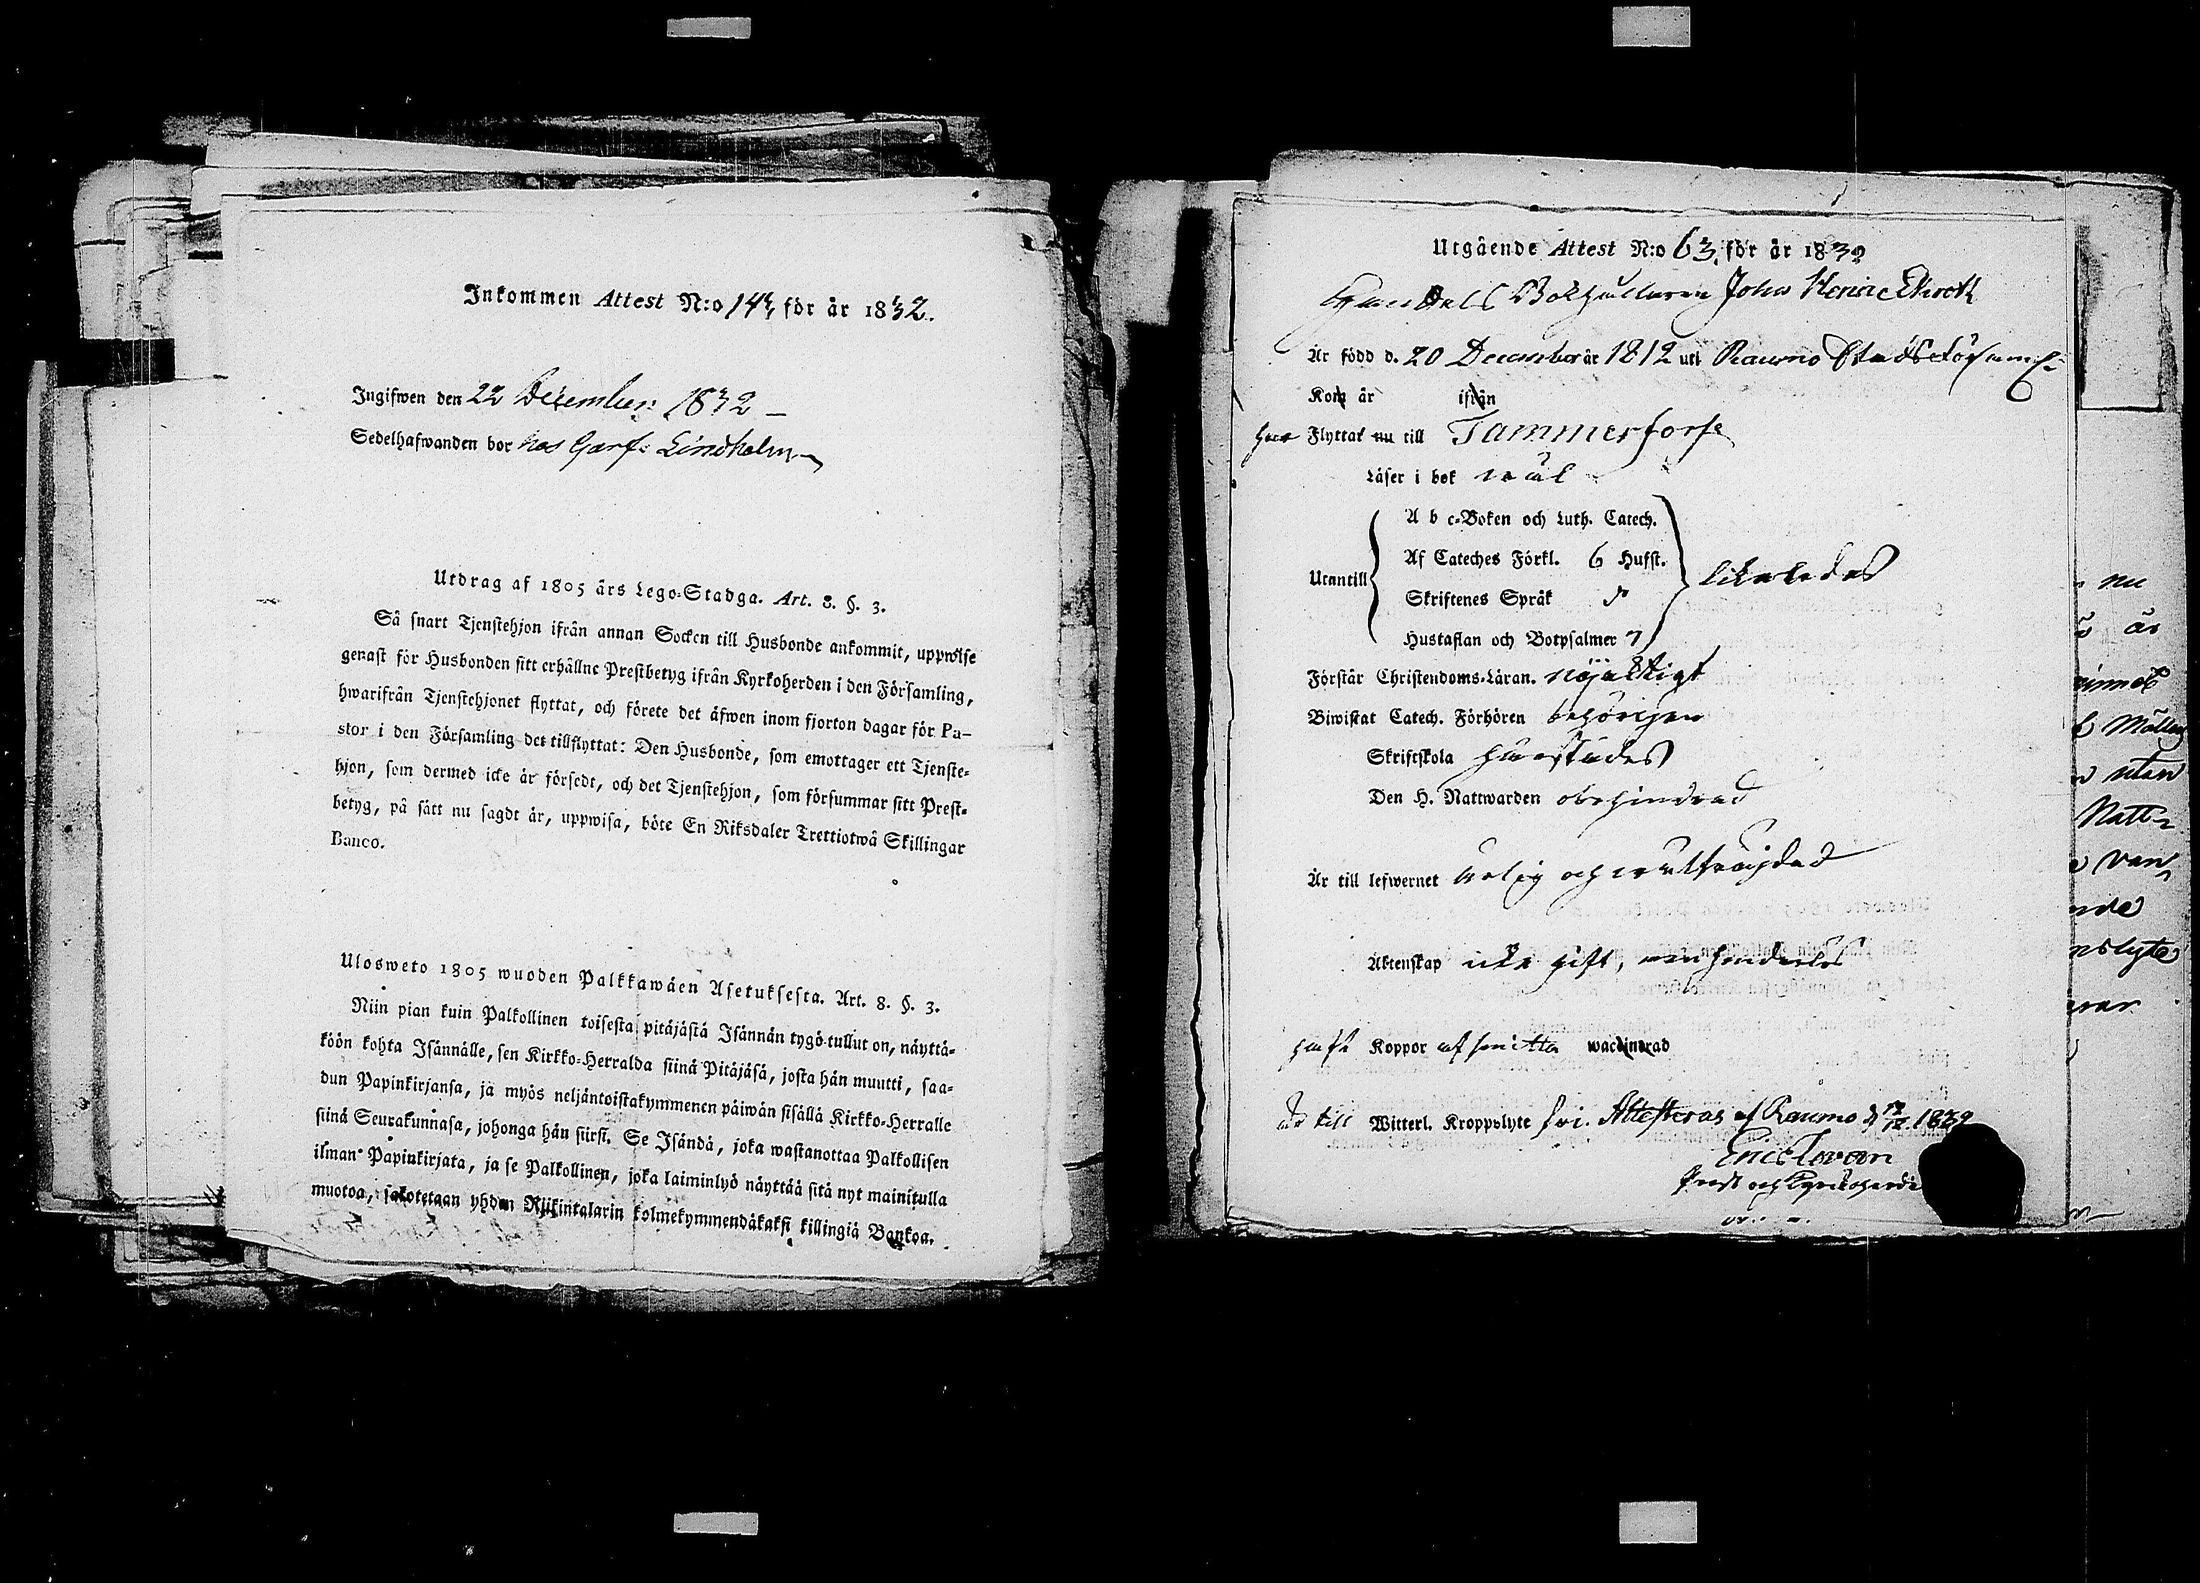 Inkommen Attest N:o 143 för år 1832.
Ingifwen den 22 December 1832 –
Sedelhafwanden bor hos Garf: Lindholm
Utdrag af 1805 års Lego-Stadga. Art. 8. §. 3.
Så snart Tjenstehjon ifrån annan Socken till Husbonde ankommit, uppwise
genast för Husbonden sitt erhållne Prestbetyg ifrån Kyrkoherden i den Församling,
hwarifrån Tjenstehjonet flyttat, och förete det äfwen inom fjorton dagar för Pa-
stor i den Församling det tillflyttat: Den Husbonde, som emottager ett Tjenste-
hjon, som dermed icke är försedt, och det Tjenstehjon, som försummar sitt Prest-
betyg, på sätt nu sagdt är, uppwisa, böte En Riksdaler Trettiotwå Skillingar
Banco.
Ulosweto 1805 wuoden Palkkawäen Asetuksesta. Art. 8. §. 3.
Niin pian kuin Palkollinen toisesta pitäjästä Isännän tygö tullut on, näyttä-
köön kohta Isännälle, sen Kirkko-Herralda siinä Pitäjäsä, josta hän muutti, saa-
dun Papinkirjansa, ja myös neljäntoistakymmenen päiwän sisällä Kirkko-Herralle
siinä Seurakunnasa, johonga hän siirsi. Se Isändä, joka wastanottaa Palkollisen
ilman Papinkirjata, ja se Palkollinen, joka laiminlyö näyttää sitä nyt mainitulla
muotoa, sakotetaan yhden Riikintalarin kolmekymmendäkaksi killingiä Bankoa.
Utgående Attest N:o 63 för år 1832
Handels Bokhållaren Johan Henric Ekroth
Är född d. 20 December år 1812 uti Raumo Stadsförsaml:
Kom år ifrån
Flyttat nu till Tammerfors
Läser i bok wäl
A b c-Boken och Luth. Catech.
Af Cateches Förkl. 6 Hufst.
Utantill Skriftenes Språk likaledes
Hustaflan och Botpsalmer 7
Förstår Christendoms-Läran. nöjaktigt
Biwistat Catech. Förhören behörigen
Skriftskola
Den H. Nattwarden obehindrad
Är till lefwernet ärlig och wälfrejdad
Äktenskap icke gift, men hinderlös
haft Koppor af smitta waccinerad
är till Witterl. Kroppslyte fri. Attesteras af Raumo d. 12/12 1832
Prost och Kyrkoherde
nu
är
Mållen
utan
Natt-
van
nslyte